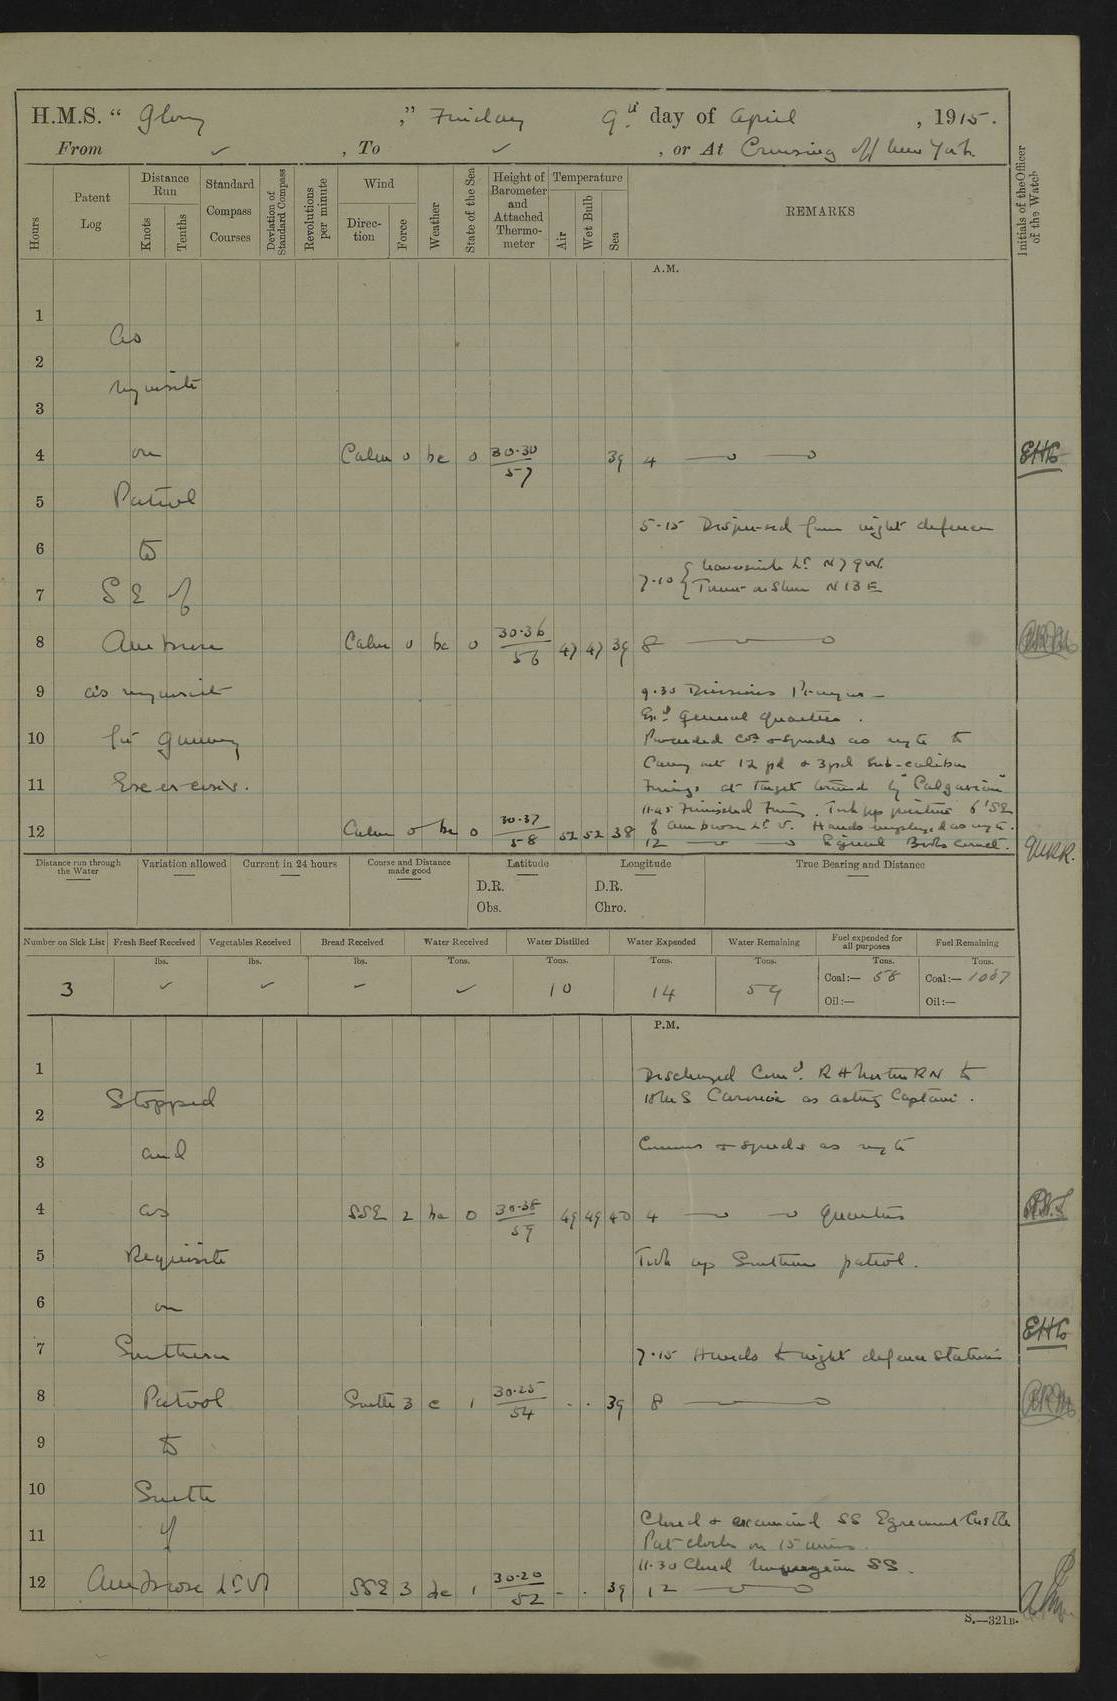 H.M.S. “ Glory ,” Friday 9th day of April , 1915.
From ✓ , To ✓ , or At Cruising off New York
Hours
Patent Log
Distance Run
Knots
Tenths
Standard Compass Courses
Deviation of Standard Compass
Revolutions per minute
Wind
Direction
Force
Weather
State of the Sea
Height of Barometer and Attached Thermometer
Temperature
Air
Wet Bulb
Sea
REMARKS
Initials of the Officer of the Watch
A.M.
1
As
2
requisite
3
4 on Calm 0 bc 0 30.30 57 39 4 EHG
5 Patrol
5.15 Dispersed from night defence
6 to
7.10 { Lt N79W.
N13E
7 S E of
8 Ambrose Calm 0 bc 0 30.36 56 47 47 39 8
9 as requisite 9.30 Divisions Prayers —
Exd General Quarters .
10 for gunnery Proceeded Cos & speeds as reqte to
Carry out 12 pd & 3 pd Sub-calibre
11 Exercises. Firings at target towed by "Calgarian"
11.25 Finished Firing. Took up position 6' SE
12 Calm 0 bc 0 30.37 58 52 52 38 of Ambrose Lt V. Hands employed as reqte.
12 Signal Books correct.
Distance run through the Water
Variation allowed
Current in 24 hours
Course and Distance made good
Latitude
D.R.
Obs.
Longitude
D.R.
Chro.
True Bearing and Distance
Number on Sick List
Fresh Beef Received
Vegetables Received
Bread Received
Water Received
Water Distilled
Water Expended
Water Remaining
Fuel expended for all purposes
Fuel Remaining
lbs. lbs. lbs. Tons. Tons. Tons. Tons. Tons. Tons.
3 ✓ ✓ ✓ ✓ 10 14 59 Coal:— 58 Coal:— 1067
Oil:— Oil:—
P.M.
1 Discharged Comd. R H RN to
Stopped HMS Caronia as acting Captain.
2
and Courses & speeds as reqte
3
4 as SSE 2 bc 0 30.38 59 49 49 40 4 Quarters
5 Requisite Took up Southern patrol.
6 on
EHG
7 Southern 7.15 Hands to night defence stations
8 Patrol South 3 c 1 30.25 54 - - 39 8
9 to
10 South
Closed & examined SS Egremont Castle
11 of Put clocks on 15 mins.
11.30 Closed Norwegian SS.
12 Ambrose Lt Vl SSE 3 bc 1 30.20 52 - - 39 12
S.—321B.